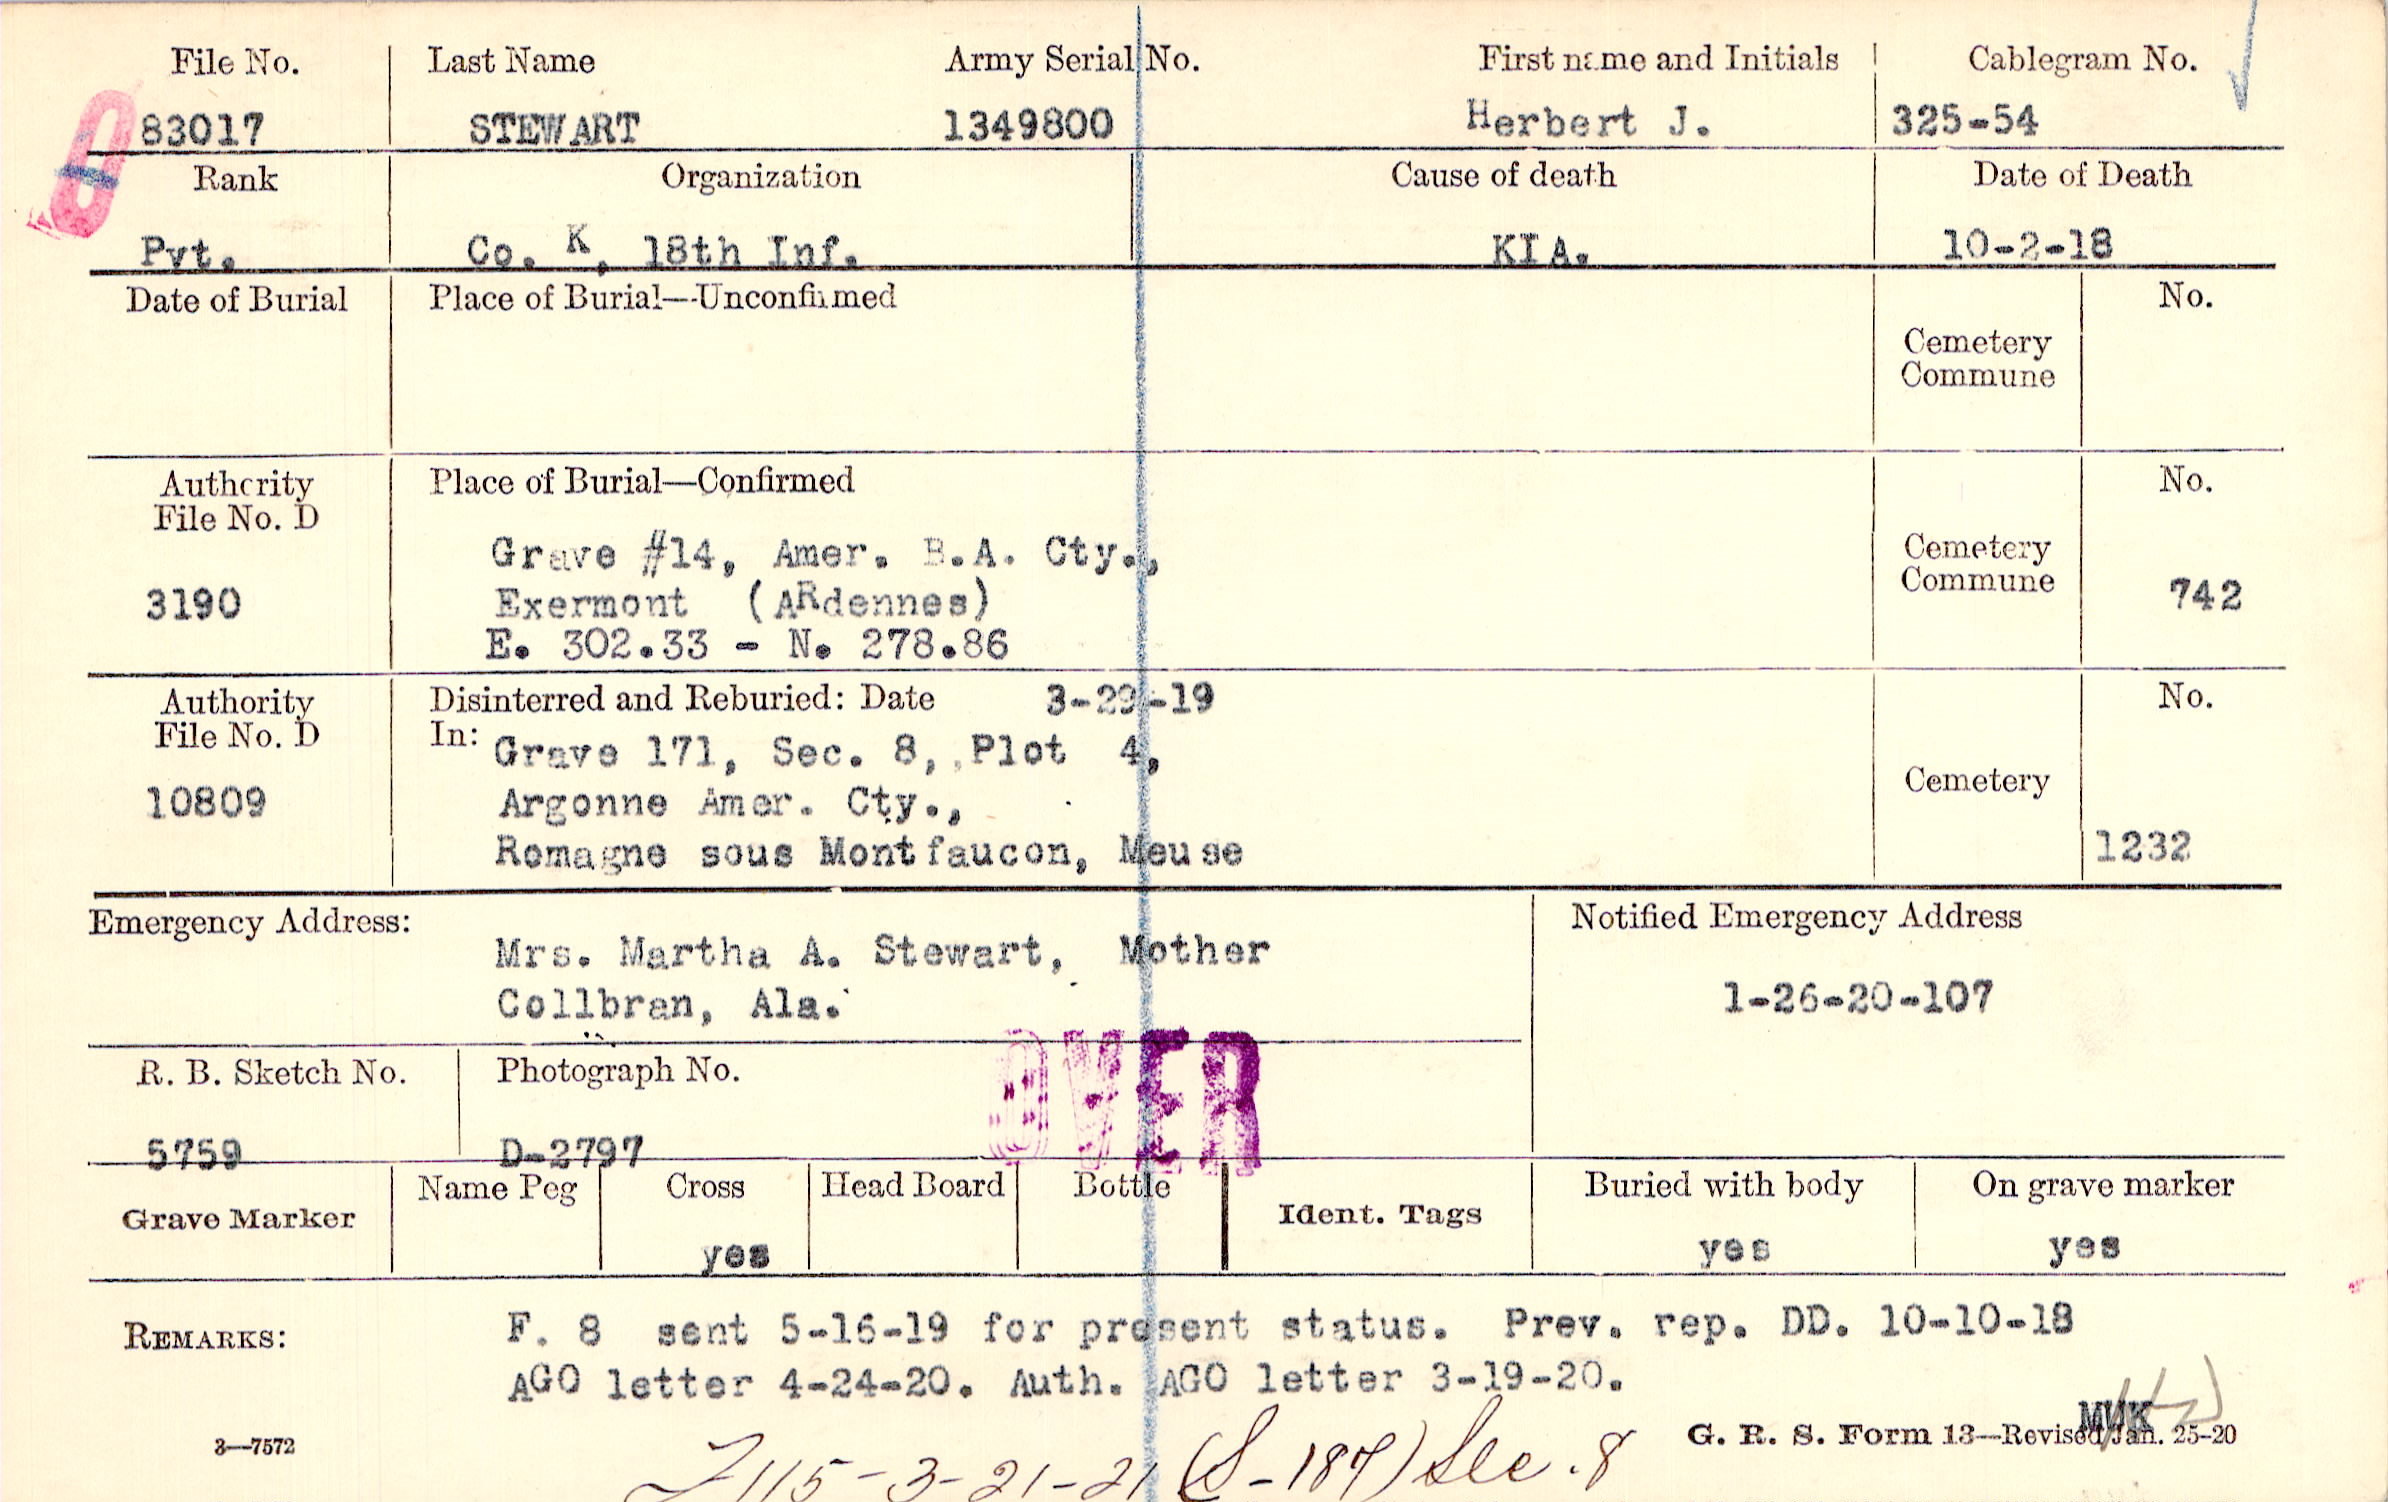 File No. Last Name Army Serial No. First name and Initials Cablegram No.
83017 STEWART 1349800 Herbert J. 325-54
Rank Organization Cause of death Date of Death
Pvt. Co. K, 18th Inf. KIA. 10-2-18
Date of Burial Place of Burial—Unconfirmed No.
Cemetery
Commune
Authority Place of Burial—Confirmed No.
File No. D
Grave #14, Amer. B.A. Cty.,
Cemetery
Commune
3190 Exermont (ARdennes) 742
E. 302.33 - N. 278.86
Authority Disinterred and Reburied: Date 3-29-19 No.
File No. D In: Grave 171, Sec. 8, Plot 4,
Cemetery
10809 Argonne Amer. Cty.,
Romagne sous Montfaucon, Meuse 1232
Emergency Address: Notified Emergency Address
Mrs. Martha A. Stewart, Mother
Collbran, Ala. 1-26-20-107
OVER
R. B. Sketch No. Photograph No.
5759 D-2797
Grave Marker Name Peg Cross Head Board Bottle Ident. Tags Buried with body On grave marker
yes yes yes
REMARKS: F. 8 sent 5-16-19 for present status. Prev. rep. DD. 10-10-18
AGO letter 4-24-20. Auth. AGO letter 3-19-20.
MWK
3—7572 G. R. S. Form 13—Revised Jan. 25-20
115-3-21-21 (S-187) Sec. 8